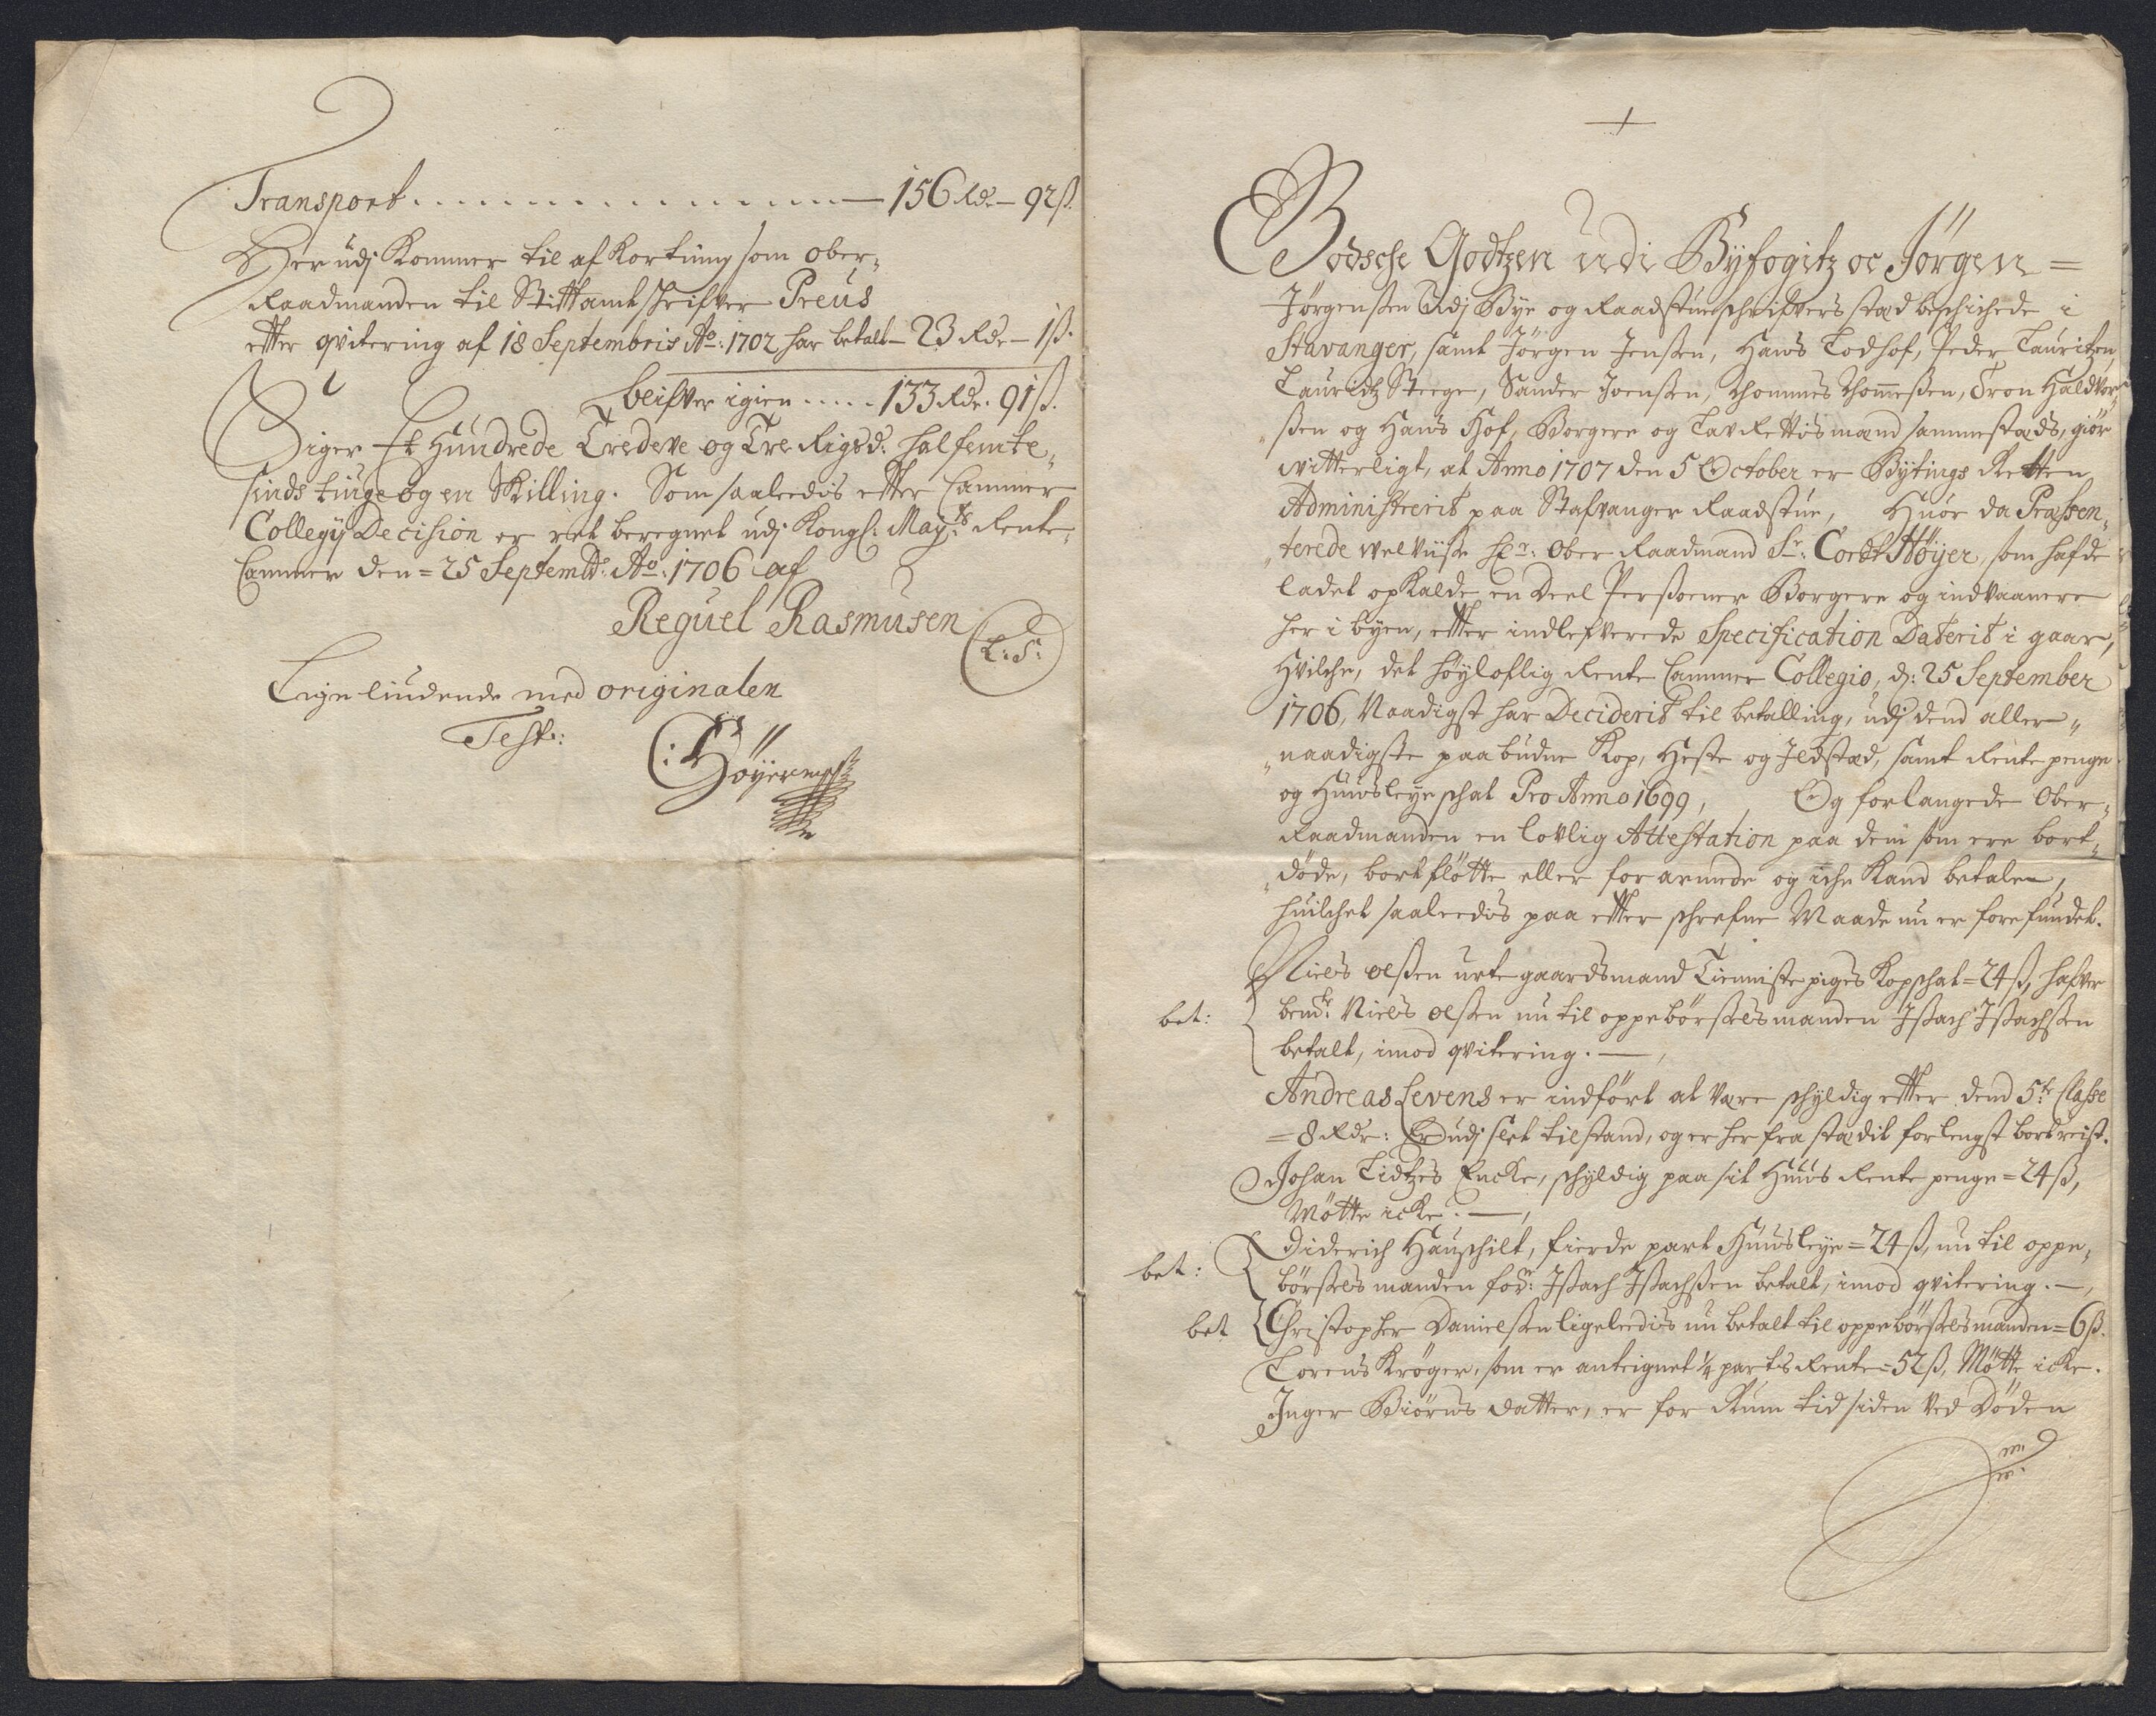 Transport - - - - - - - - - - - - 156 Rdr – 92 ß.
Her udj Kommer til af Kortning som ober-
Raadmanden til Stiftamtschrifver Preus
etter qvitering af 18 Septembris Ao: 1702 har betalt – 23 Rdr – 1 ß.
bleifver igien - - - - - 133 Rdr. 91 ß.
Siger Et Hundrede Tredeve og Tre Rigsd: halfemte-
sinds tiuge og en Skilling. Som saaleedis etter Cammer
Collegij Decision er ret beregnet udj Kongl: Mayts: Rente-
Cammer den = 25 Septembr: Ao: 1706 af
Reguel Rasmusen
L: S:
Lige liudende med originalen
Test:
C: Höyer mpr
+
Bodsche Godtzen udi Byfogitz oc Jörgen =
Jörgenßen Udj Bye og Raadstueschrifvers stæd beschichede i
Stavanger, samt Jörgen Jenßen, Hans Todhof, Peder Lauritzen
Lauridtz Steege, Sander Joensen, Thommes Thommeßen, Tron Haldvor-
ßen og Hans Hof, Borgere og Lav Rettis mænd sammestæds, giör
vitterligt, at Anno 1707 den 5 October er Bytings Retten
Administrerit paa Stafvanger Raadstue, Huor da Præsen-
terede welviise Hr: Ober Raadmand Sr: Cordt Höyer, som hafde
ladet opKalde en Deel Persoener Borgere og indvaanere
her i byen, etter indlefverede Specification Daterit i gaar,
Hvilche, det höyloflig Rente Cammer Collegio, d: 25 September
1706, Naadigst har Deciderit til betalling, udj dend aller-
naadigste paabudne Kop, Heste og Ildstæd, samt Rente penge
og Huusleye schat Pro Anno 1699, Og forlangede Ober-
Raadmanden en lovlig Attestation paa dem som ere bort-
döde, bortflötte eller forarmede og iche Kand betale,
huilchet saaleedis paa etter schrefne Maade nu er forefundet.
Niels olßen urtegaardsmand Tienniste piges Kopschat = 24 ß, hafver
bet: bemte: Niels olßen nu til oppebörßelsmanden Ißach Ißachßen
betalt, imod qvitering. —,
Andreas Levens er indfört at være schyldig etter dend 5te Classe
= 8 Rdr: Er udj slet tilstand, og er her fra stædit forlengst bortreist.
Johan Tidtzes Encke, schyldig paa sit Huus Rente penge = 24 ß,
Mötte icke. —,
Diderich Hauschilt, fierde part Huusleye = 24 ß, nu til oppe-
bet: börßels manden forn: Ißach Ißachßen betalt, imod qvitering. —,
bet Christopher Danielßen ligeleedis nu betalt til oppebörßelsmanden = 6 ß.
Lorens Kröger, som er anteignet ¼ parts Rente = 52 ß, Mötte icke.
Inger Biörns datter, er for Rum tid siden ved Döden